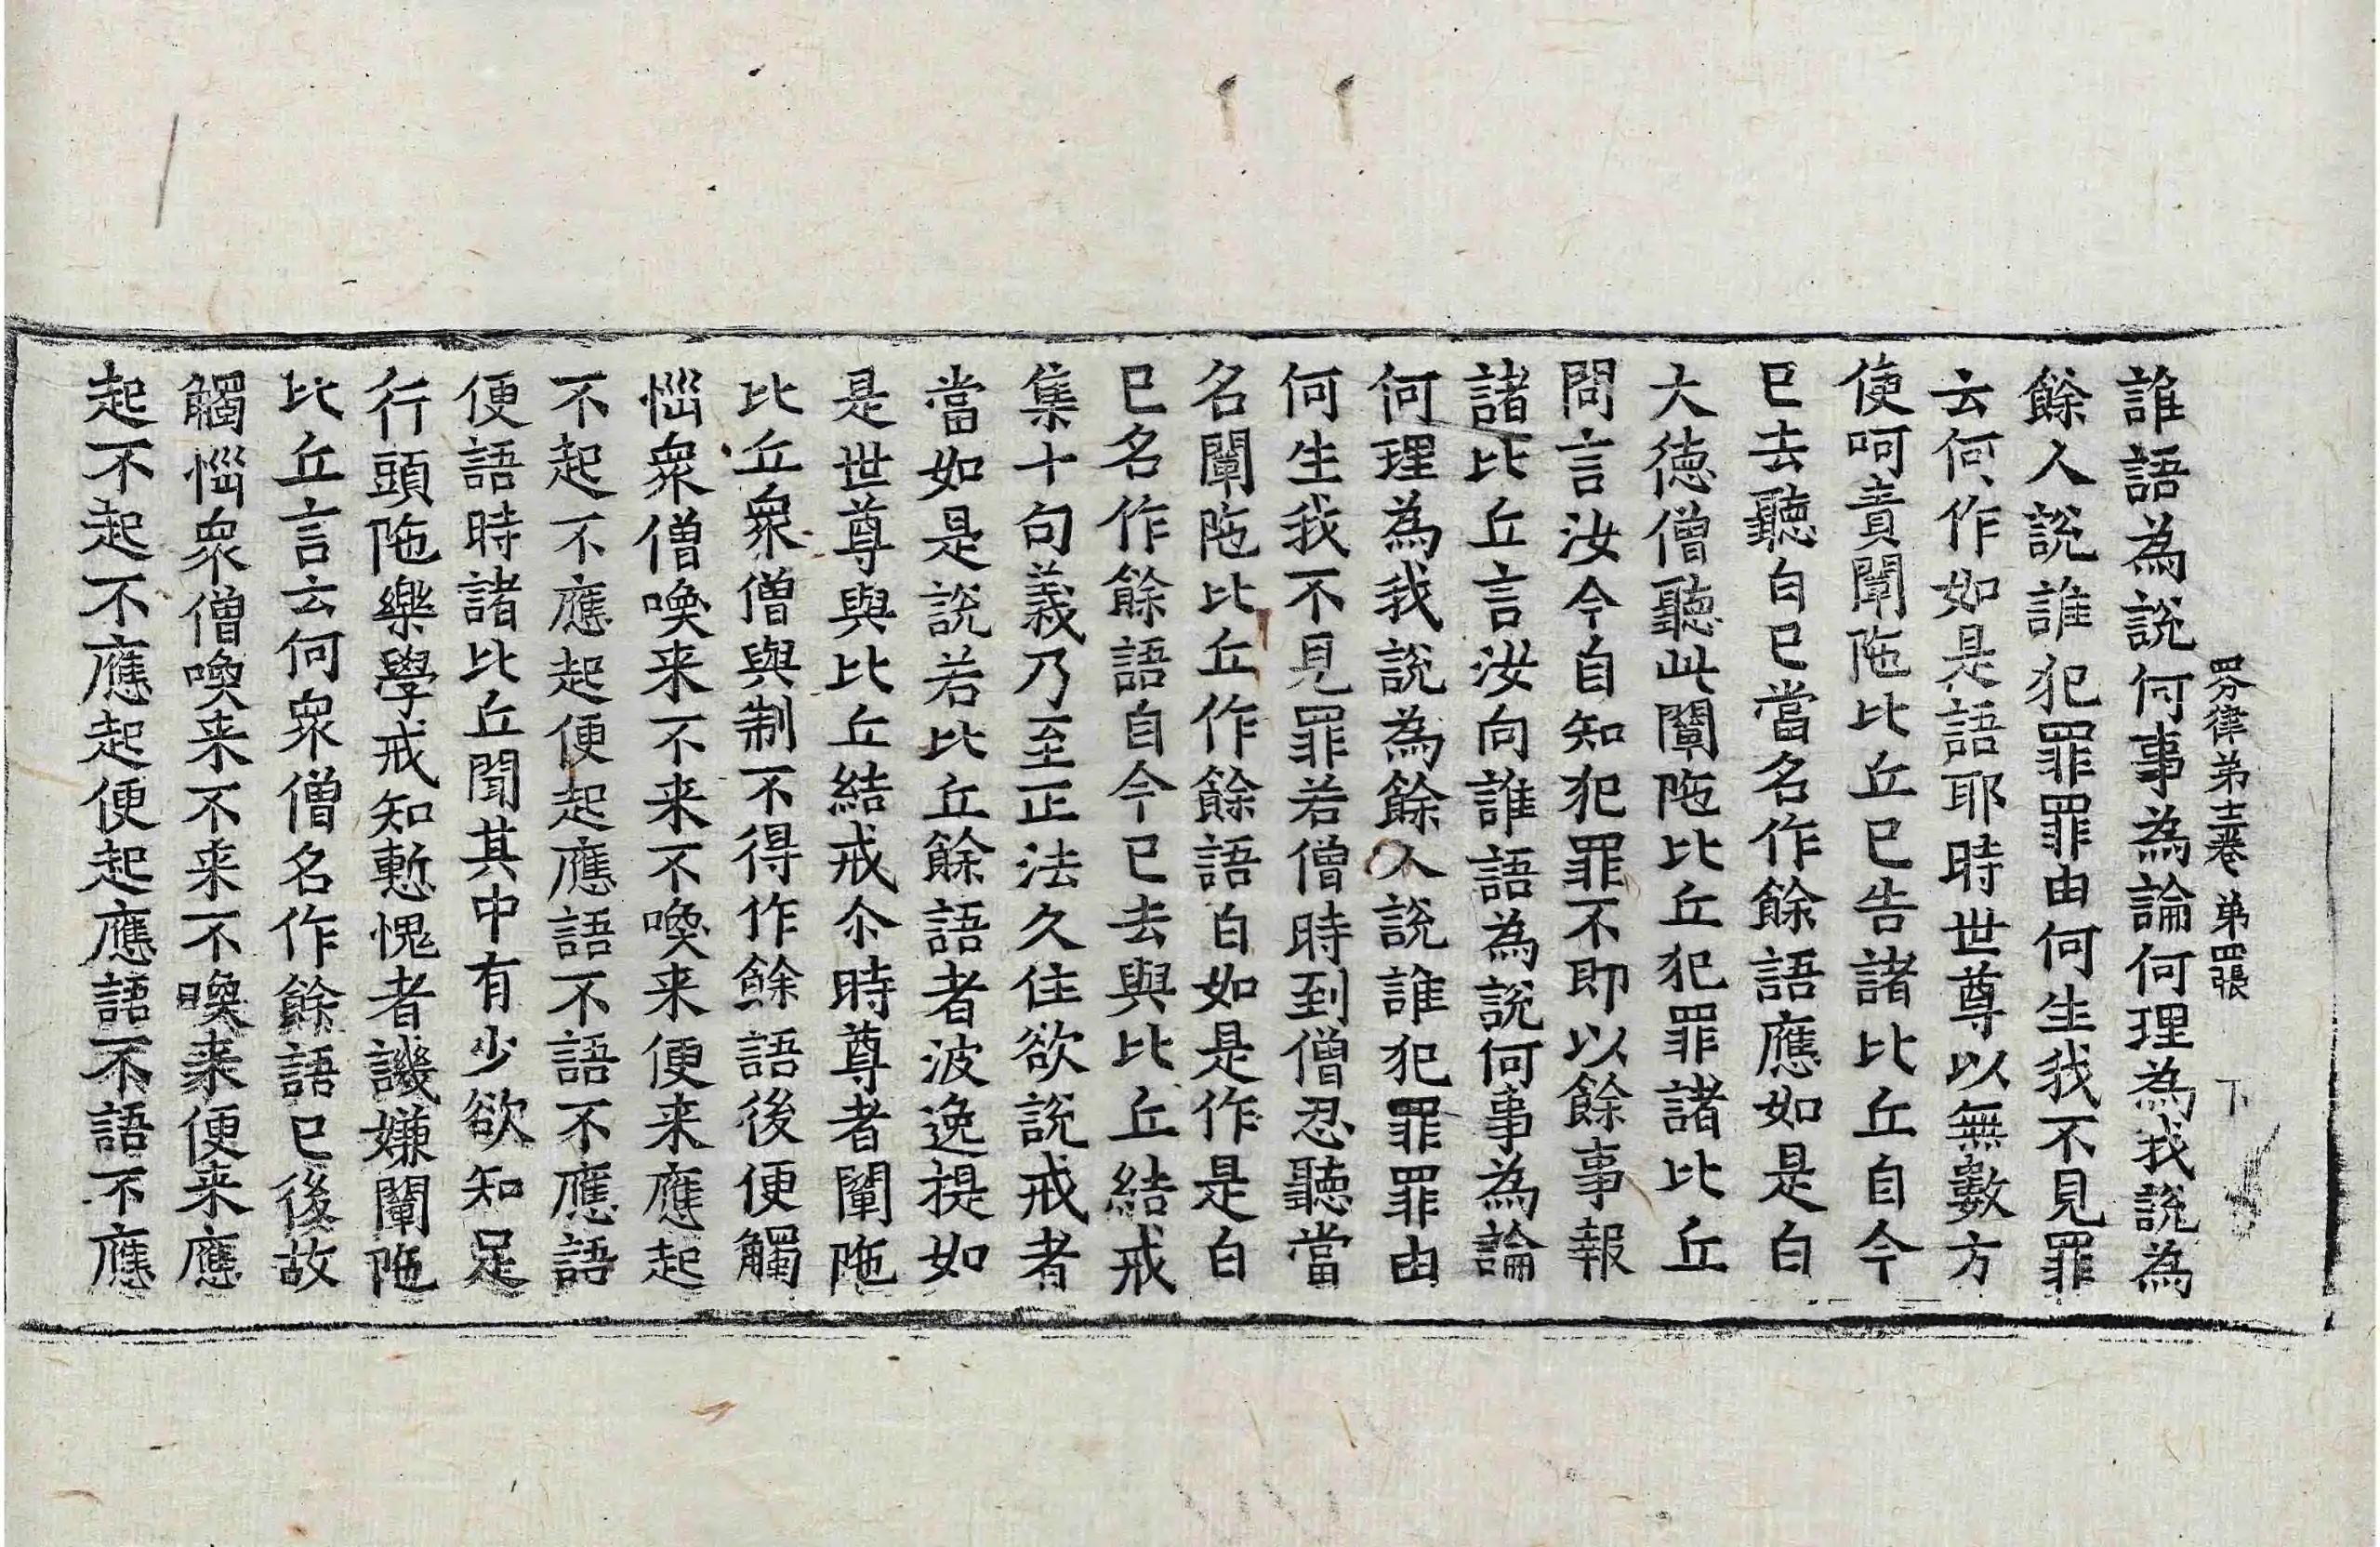 四分律第十二卷 第四張 下
誰語為說何事為論何理為我說為
餘人說誰犯罪罪由何生我不見罪
云何作如是語耶時世尊以無數方
便呵責闡陁比丘已告諸比丘自今
已去聽白已當名作餘語應如是白
大德僧聽此闡陁比丘犯罪諸比丘
問言汝今自知犯罪不即以餘事報
諸比丘言汝向誰語為說何事為論
何理為我說為餘人說誰犯罪罪由
何生我不見罪若僧時到僧忍聽當
名闡陁比丘作餘語白如是作是白
已名作餘語自今已去與比丘結戒
集十句義乃至正法久住欲說戒者
當如是說若比丘餘語者波逸提如
是世尊與比丘結戒尒時尊者闡陁
比丘衆僧與制不得作餘語後便觸
惱衆僧喚来不来不喚来便来應起
不起不應起便起應語不語不應語
便語時諸比丘聞其中有少欲知足
行頭陁樂學戒知慙愧者譏嫌闡陁
比丘言云何衆僧名作餘語已後故
觸惱衆僧喚来不来不喚来便来應
起不起不應起便起應語不語不應